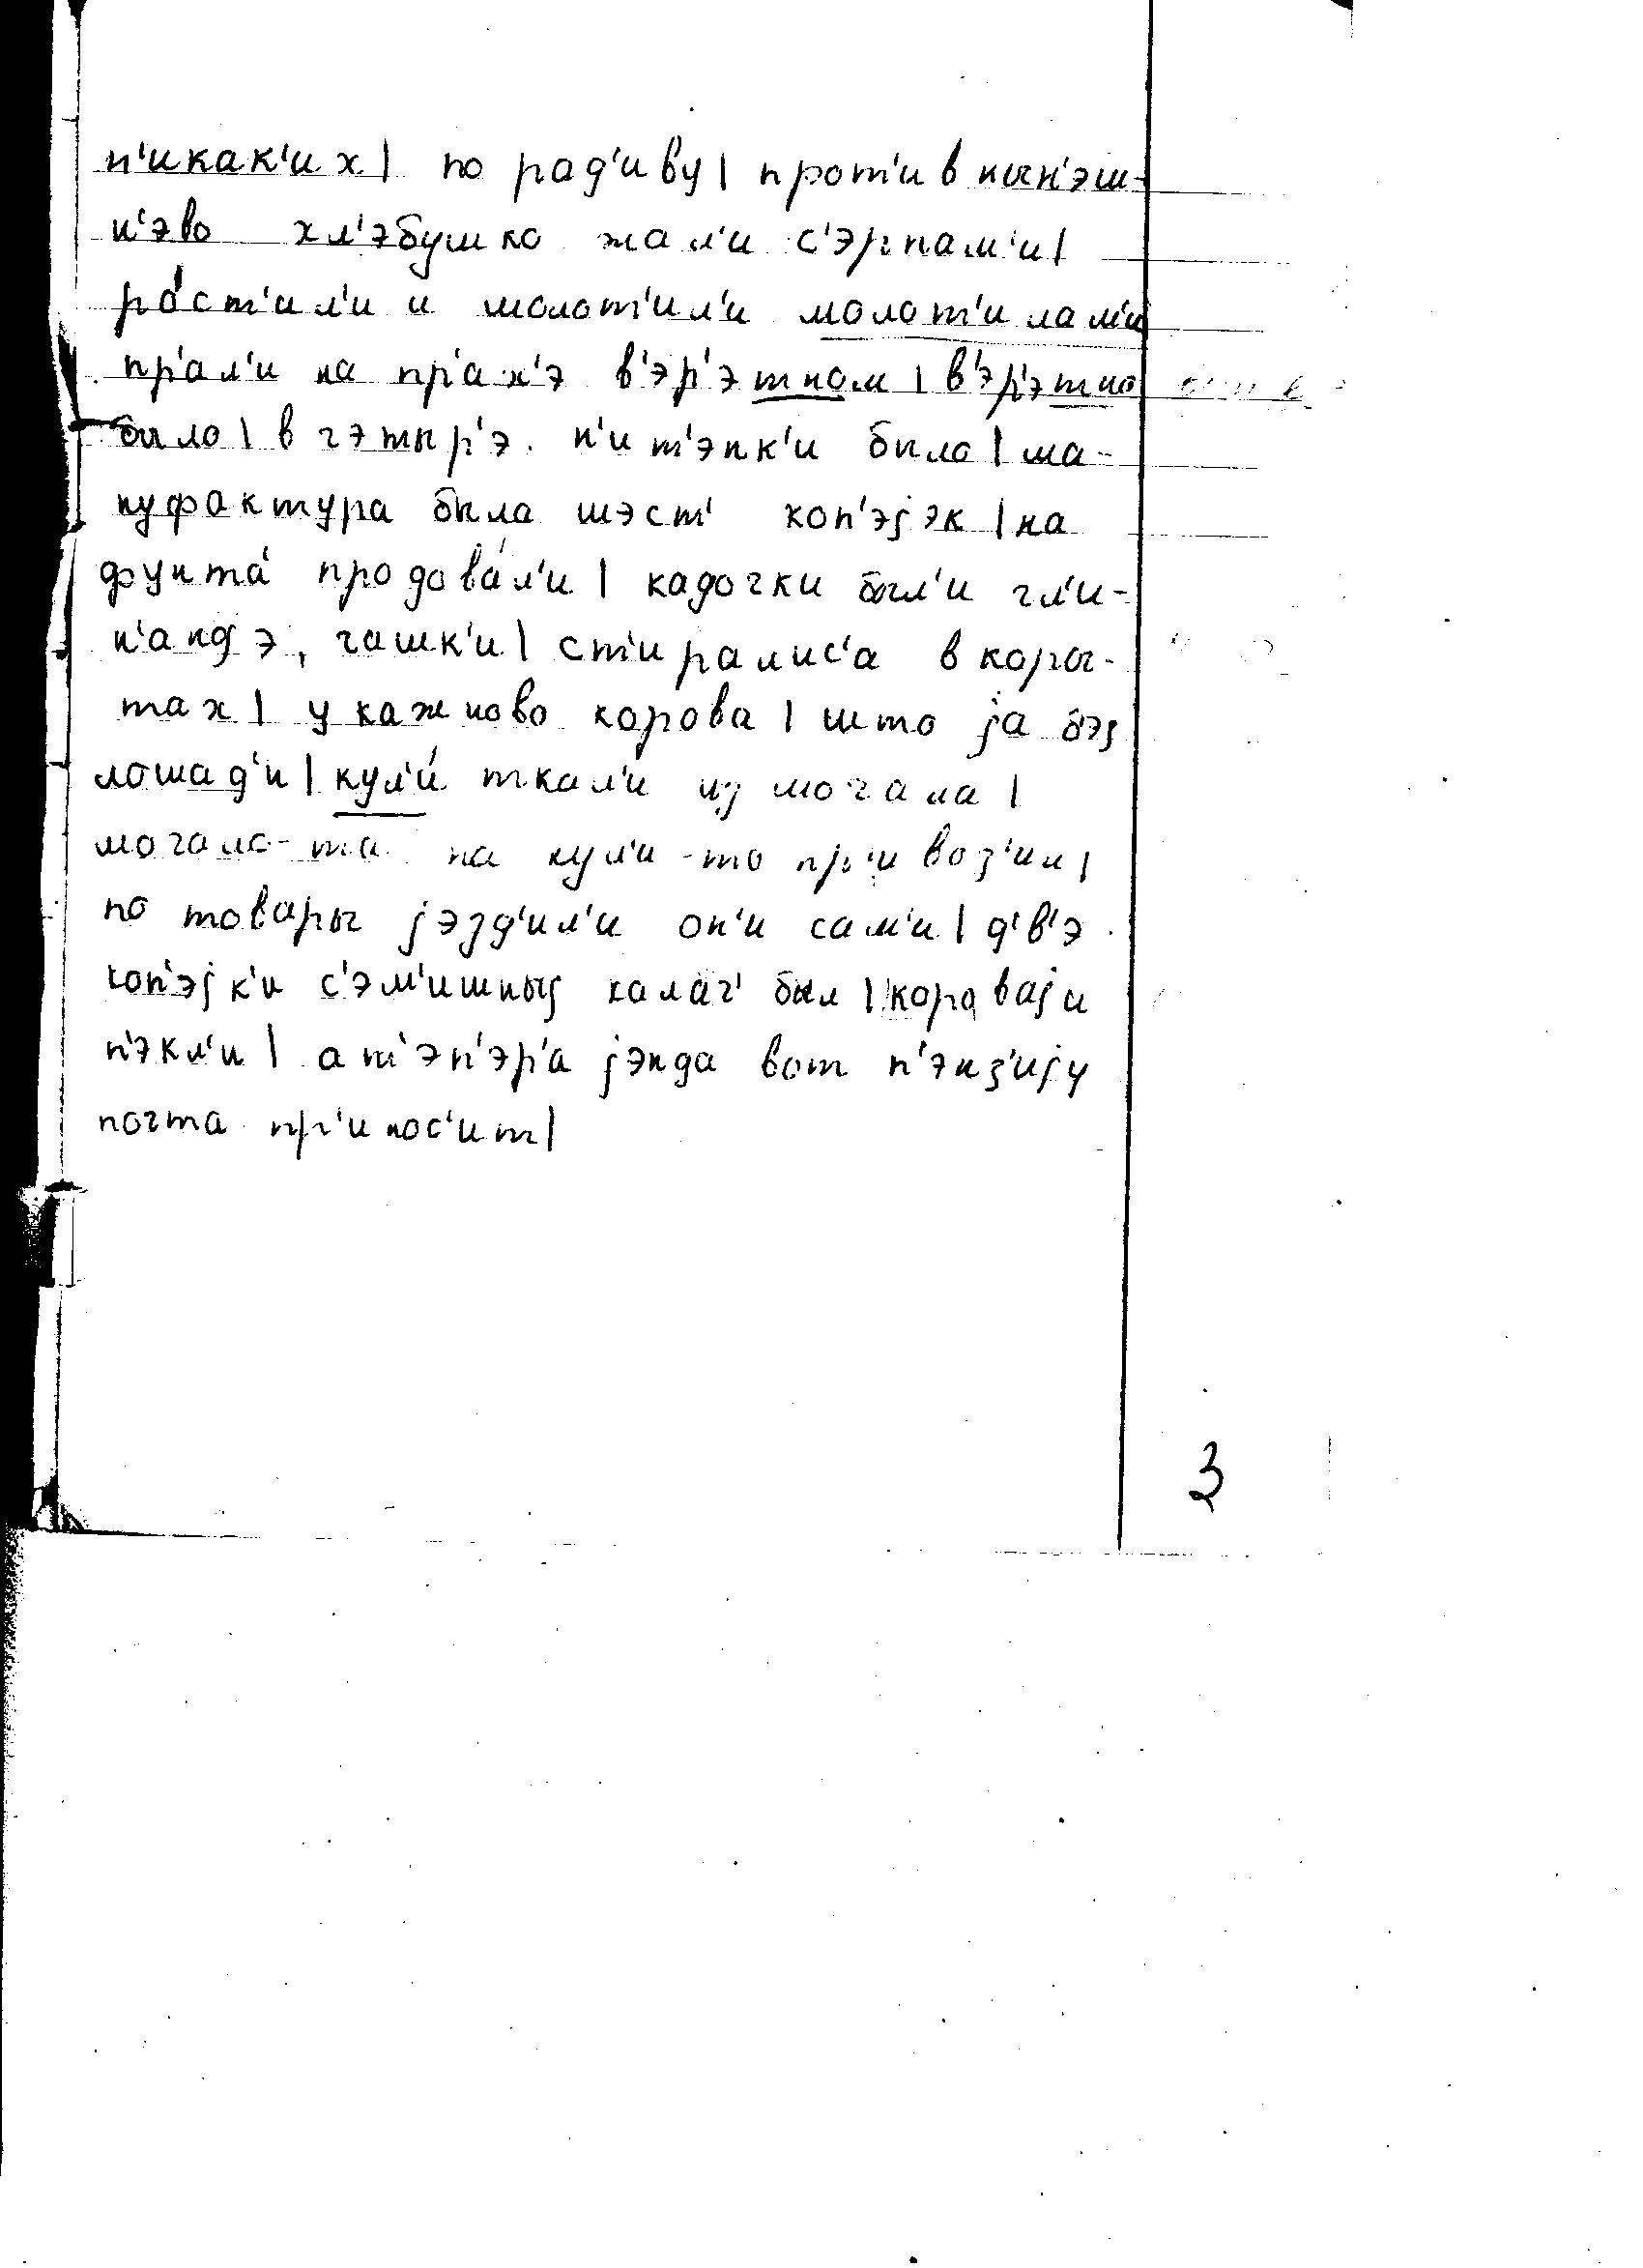 н'икак'их| по рад'иву| прот'ив нын'эш-
н'эво хл'эбушко жал'и с'эрпам'и|
ро́ст'ил'и и молот'ил'и молот'илам'и
пр'ал'и на пр'ах'э в'эр'этном | в'эр'этно
было| в чэтыр'э. н'и т'эпк'и было| ма-
нуфактура была шэст' коп'эjэк |на
фунта́ продова́л'и | кадочки был'и гл'и-
н'андэ, чашк'и| ст'иралис'а в коры-
тах| у кажново корова | што jа бэз
лошад'и| кул'и́ ткал'и из мочала |
мочало-та на кул'и-то пр'ивоз'ил|
по товары jэзд'ил'и он'и сам'и| д'в'э
коп'эjк'и с'эм'ишныj кала́ч' был | короваjи
п'экл'и | а т'эп'эр'а jэнда вот п'энз'иjу
почта пр'инос'ит|
3